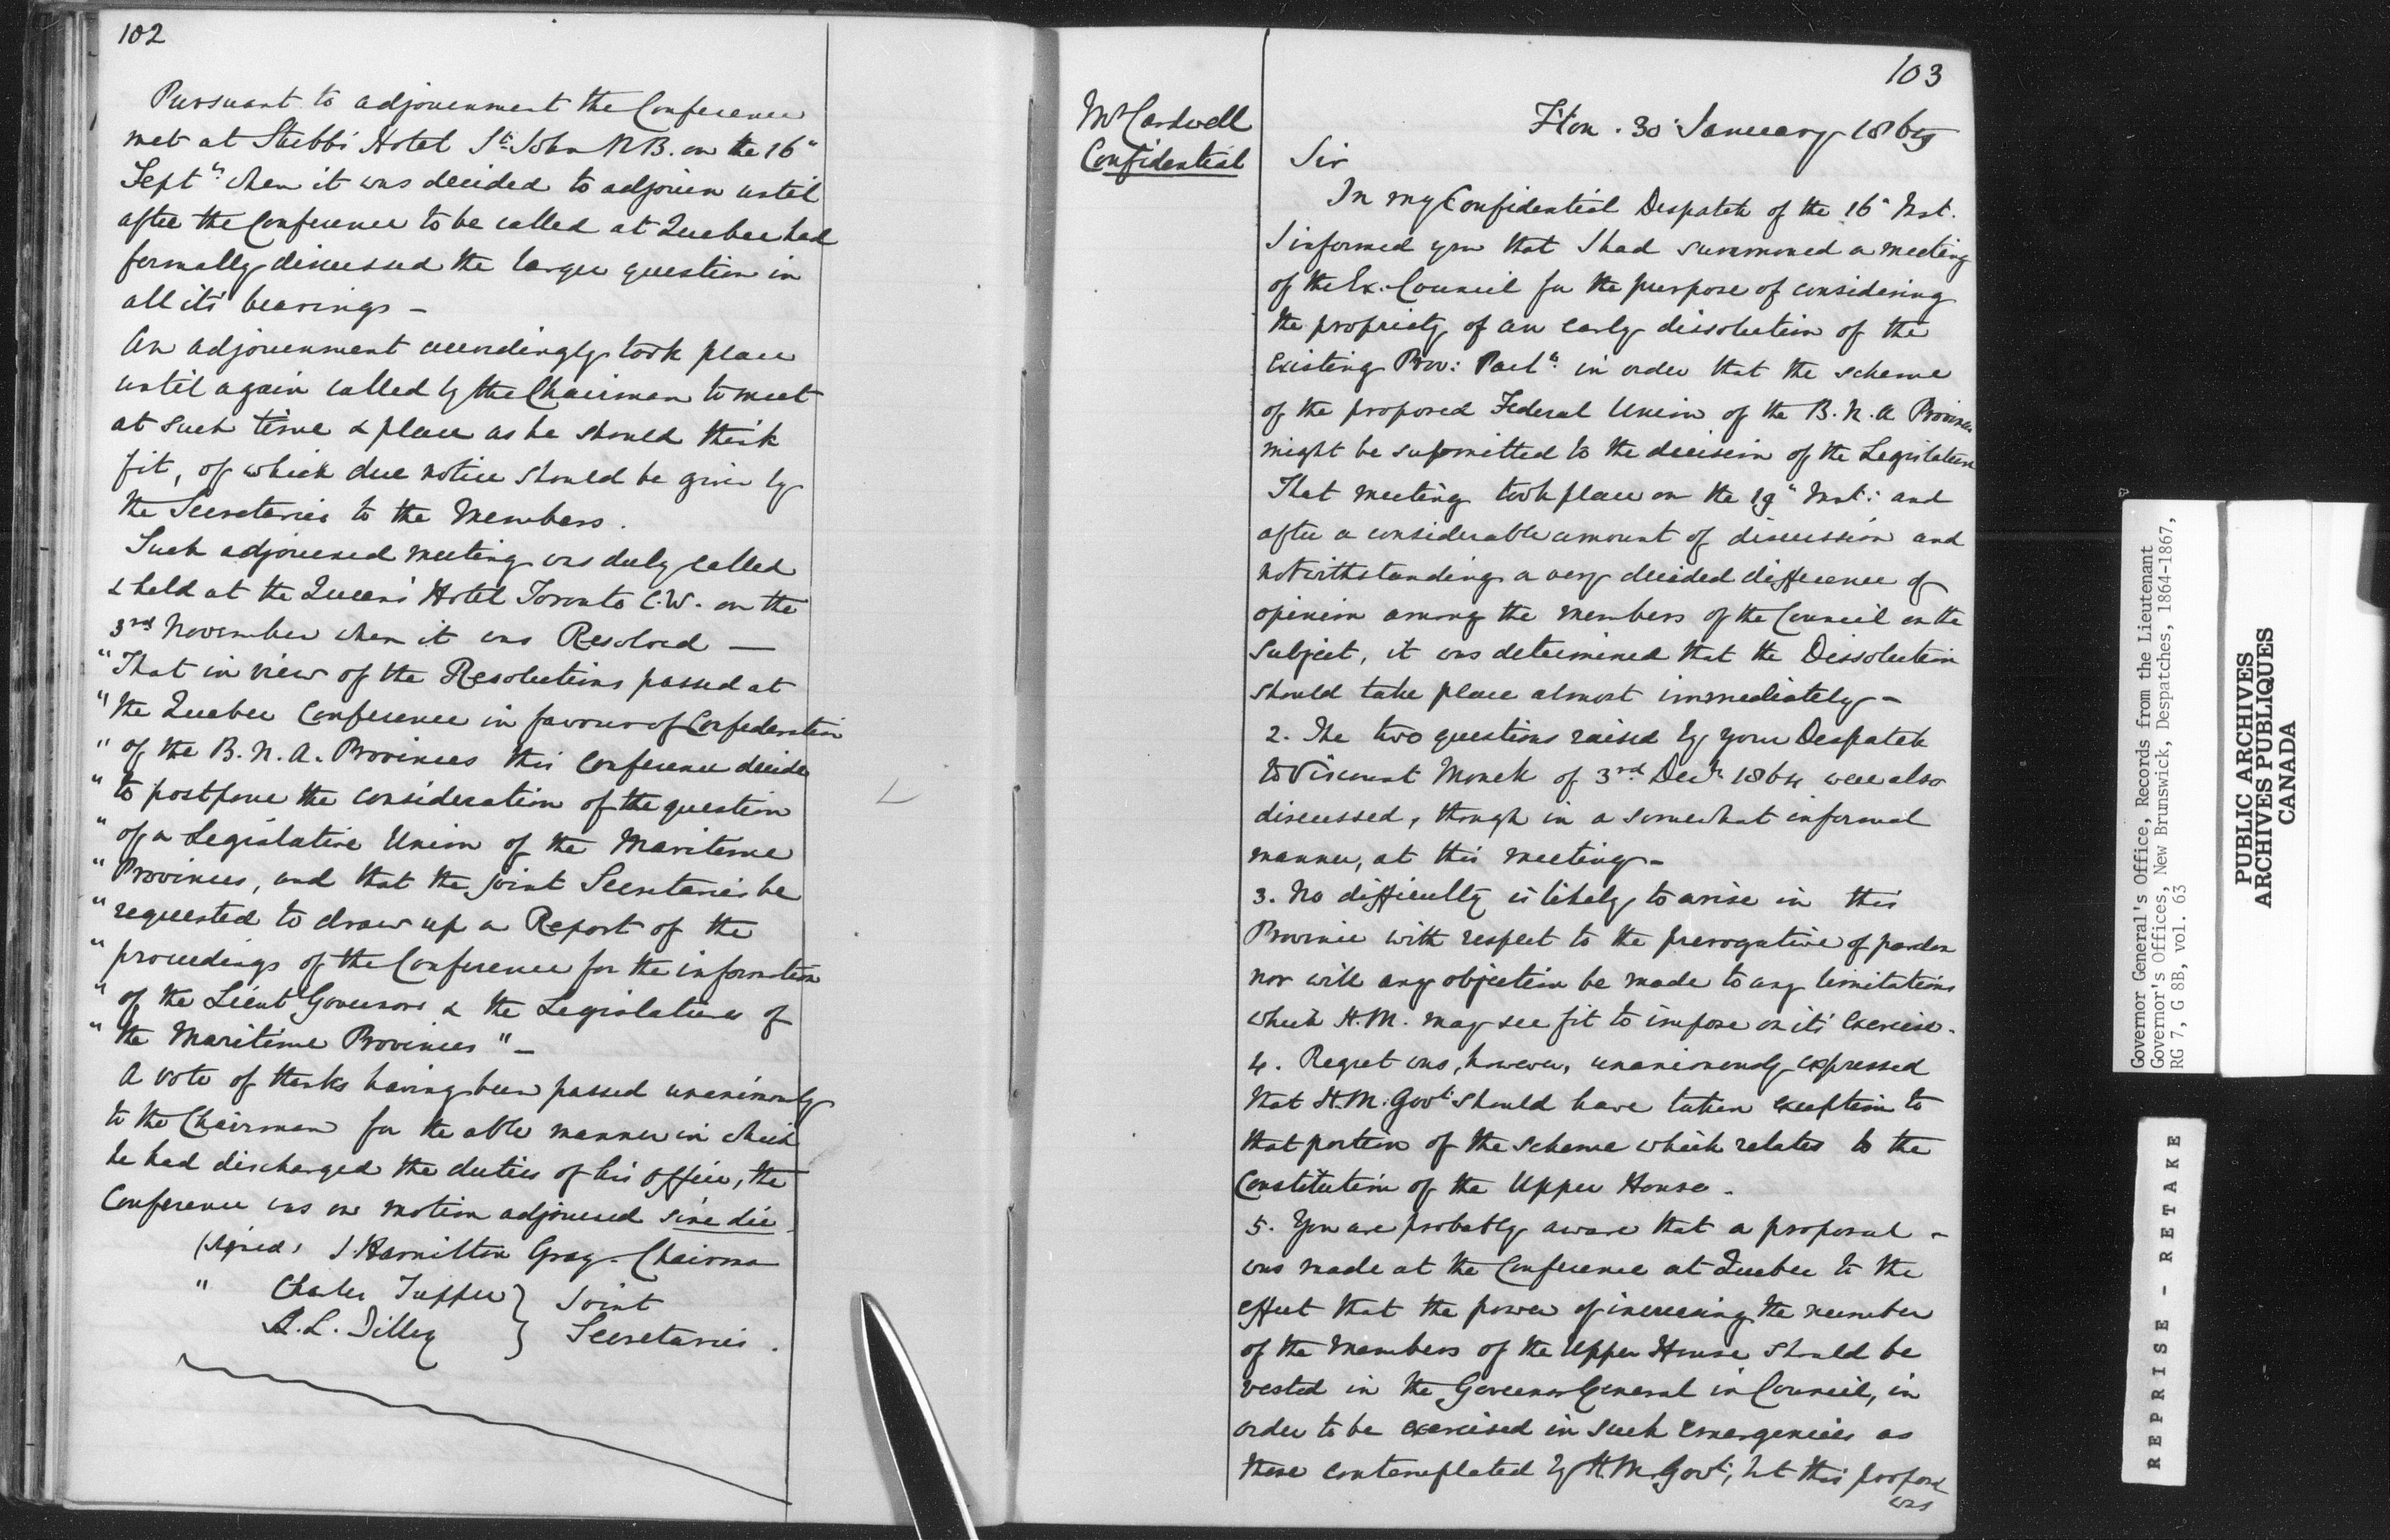 102
Pursuant to adjournment the Conference
met at Stubbs Hotel St. John N.B. on the 16"
Septr. when it was decided to adjourn until
after the Conference to be called at Quebec had
formally discussed the larger question in
all its' bearings –
An adjournment accordingly took place
until again called by the Chairman to meet
at such time & place as he should think
fit, of which due notice should be given by
the Secretaries to the Members.
Such adjourned meeting was duly called
& held at the Queens' Hotel Toronto C.W. on the
3rd November when it was Resolved —
"That in view of the Resolutions passed at
"the Quebec Conference in favour of Confederation
"of the B.N.A. Provinces this Conference decide
"to postpone the consideration of the question
"of a Legislative Union of the Maritime
"Provinces, and that the joint Secretaries be
"requested to draw up a Report of the
"proceedings of the Conference for the information
"of the Lieut Governors & the Legislatures of
"the Maritime Provinces" –
A vote of thanks having been passed unanimously
to the Chairman for the able manner in which
he had discharged the duties of his office, the
Conference was on motion adjourned sine die.
(signed) J. Hamilton Gray – Chairman
" Charles Tupper } Joint
S. L. Tilley } Secretaries.
103
Mr Cardwell
Confidential
F'ton. 30 January 1865
Sir
In my Confidential Despatch of the 16" Inst.
I informed you that I had summoned a meeting
of the Ex. Council for the purpose of considering
the propriety of an early dissolution of the
existing Prov: Parlt. in order that the scheme
of the proposed Federal Union of the B.N.A Provinces
might be submitted to the decision of the Legislature
That meeting took place on the 19" Inst: and
after a considerable amount of discussion and
notwithstanding a very decided difference of
opinion among the members of the Council on the
subject, it was determined that the Dissolution
should take place almost immediately –
2. The two questions raised by your Despatch
to Viscount Monck of 3rd Decr. 1864 were also
discussed, though in a somewhat informal
manner, at this meeting –
3. No difficulty is likely to arise in this
Province with respect to the prerogative of pardon
nor will any objection be made to any limitations
which H.M. may see fit to impose on its' exercise.
4. Regret was, however, unanimously expressed
that H.M. Govt: should have taken exception to
that portion of the scheme which relates to the
Constitution of the Upper House –
5. You are probably aware that a proposal –
was made at the Conference at Quebec to the
effect that the power of increasing the number
of the Members of the Upper House should be
vested in the Governor General in Council, in
order to be exercised in such emergencies as
those contemplated by H.M. Govt:, but this proposal
was
Governor General's Office, Records from the Lieutenant
Governor's Offices, New Brunswick, Despatches, 1864-1867,
RG 7, G 8B, vol. 63
PUBLIC ARCHIVES
ARCHIVES PUBLIQUES
CANADA
REPRISE - RETAKE